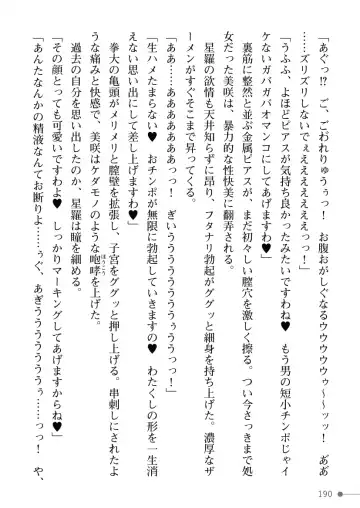 「あぐっ!?　ご、ごわれりゅうぅっ！　お腹おがしぐなるウウウウウゥ～～ッッ！　あ゛あ゛
……ズリズリしないでぇえええええええっっ！」
「うふふ、よほどピアスが気持ち良かったみたいですわね♥　もう男の短小チンポじゃイ
ケないガバガバオマンコにしてあげますわ♥」
　裏筋に整然と並ぶ金属ピアスが、まだ初々しい膣穴を激しく擦る。つい今さっきまで処
女だった美咲は、暴力的な性快美に翻弄される。
　星羅の欲情も天井知らずに昂り、フタナリ勃起がググッと細身を持ち上げた。濃厚なザ
ーメンがすぐそこまで昇ってくる。
「ああ……ああああああああぁっっ！　ぎいうううううううぅううっっ！」
「生ハメたまらない♥　おチンポが無限に勃起していきますの♥　わたくしの形を一生消
えない思い出にして差し上げますわ♥」
　拳大の亀頭がメリメリと膣壁を拡張し、子宮をググッと押し上げる。串刺しにされたよ
うな痛みと快感で、美咲はケダモノのような咆哮を上げた。
ほうこう
　過去の自分を思い出し、星羅は瞳を細める。
「その顔とっても可愛いですわよ♥　しっかりマーキングしてあげますからね♥」
「あんたなんかの精液なんてお断りよ……ぅぐ、あぎうううううううぅっっ！　や、
190